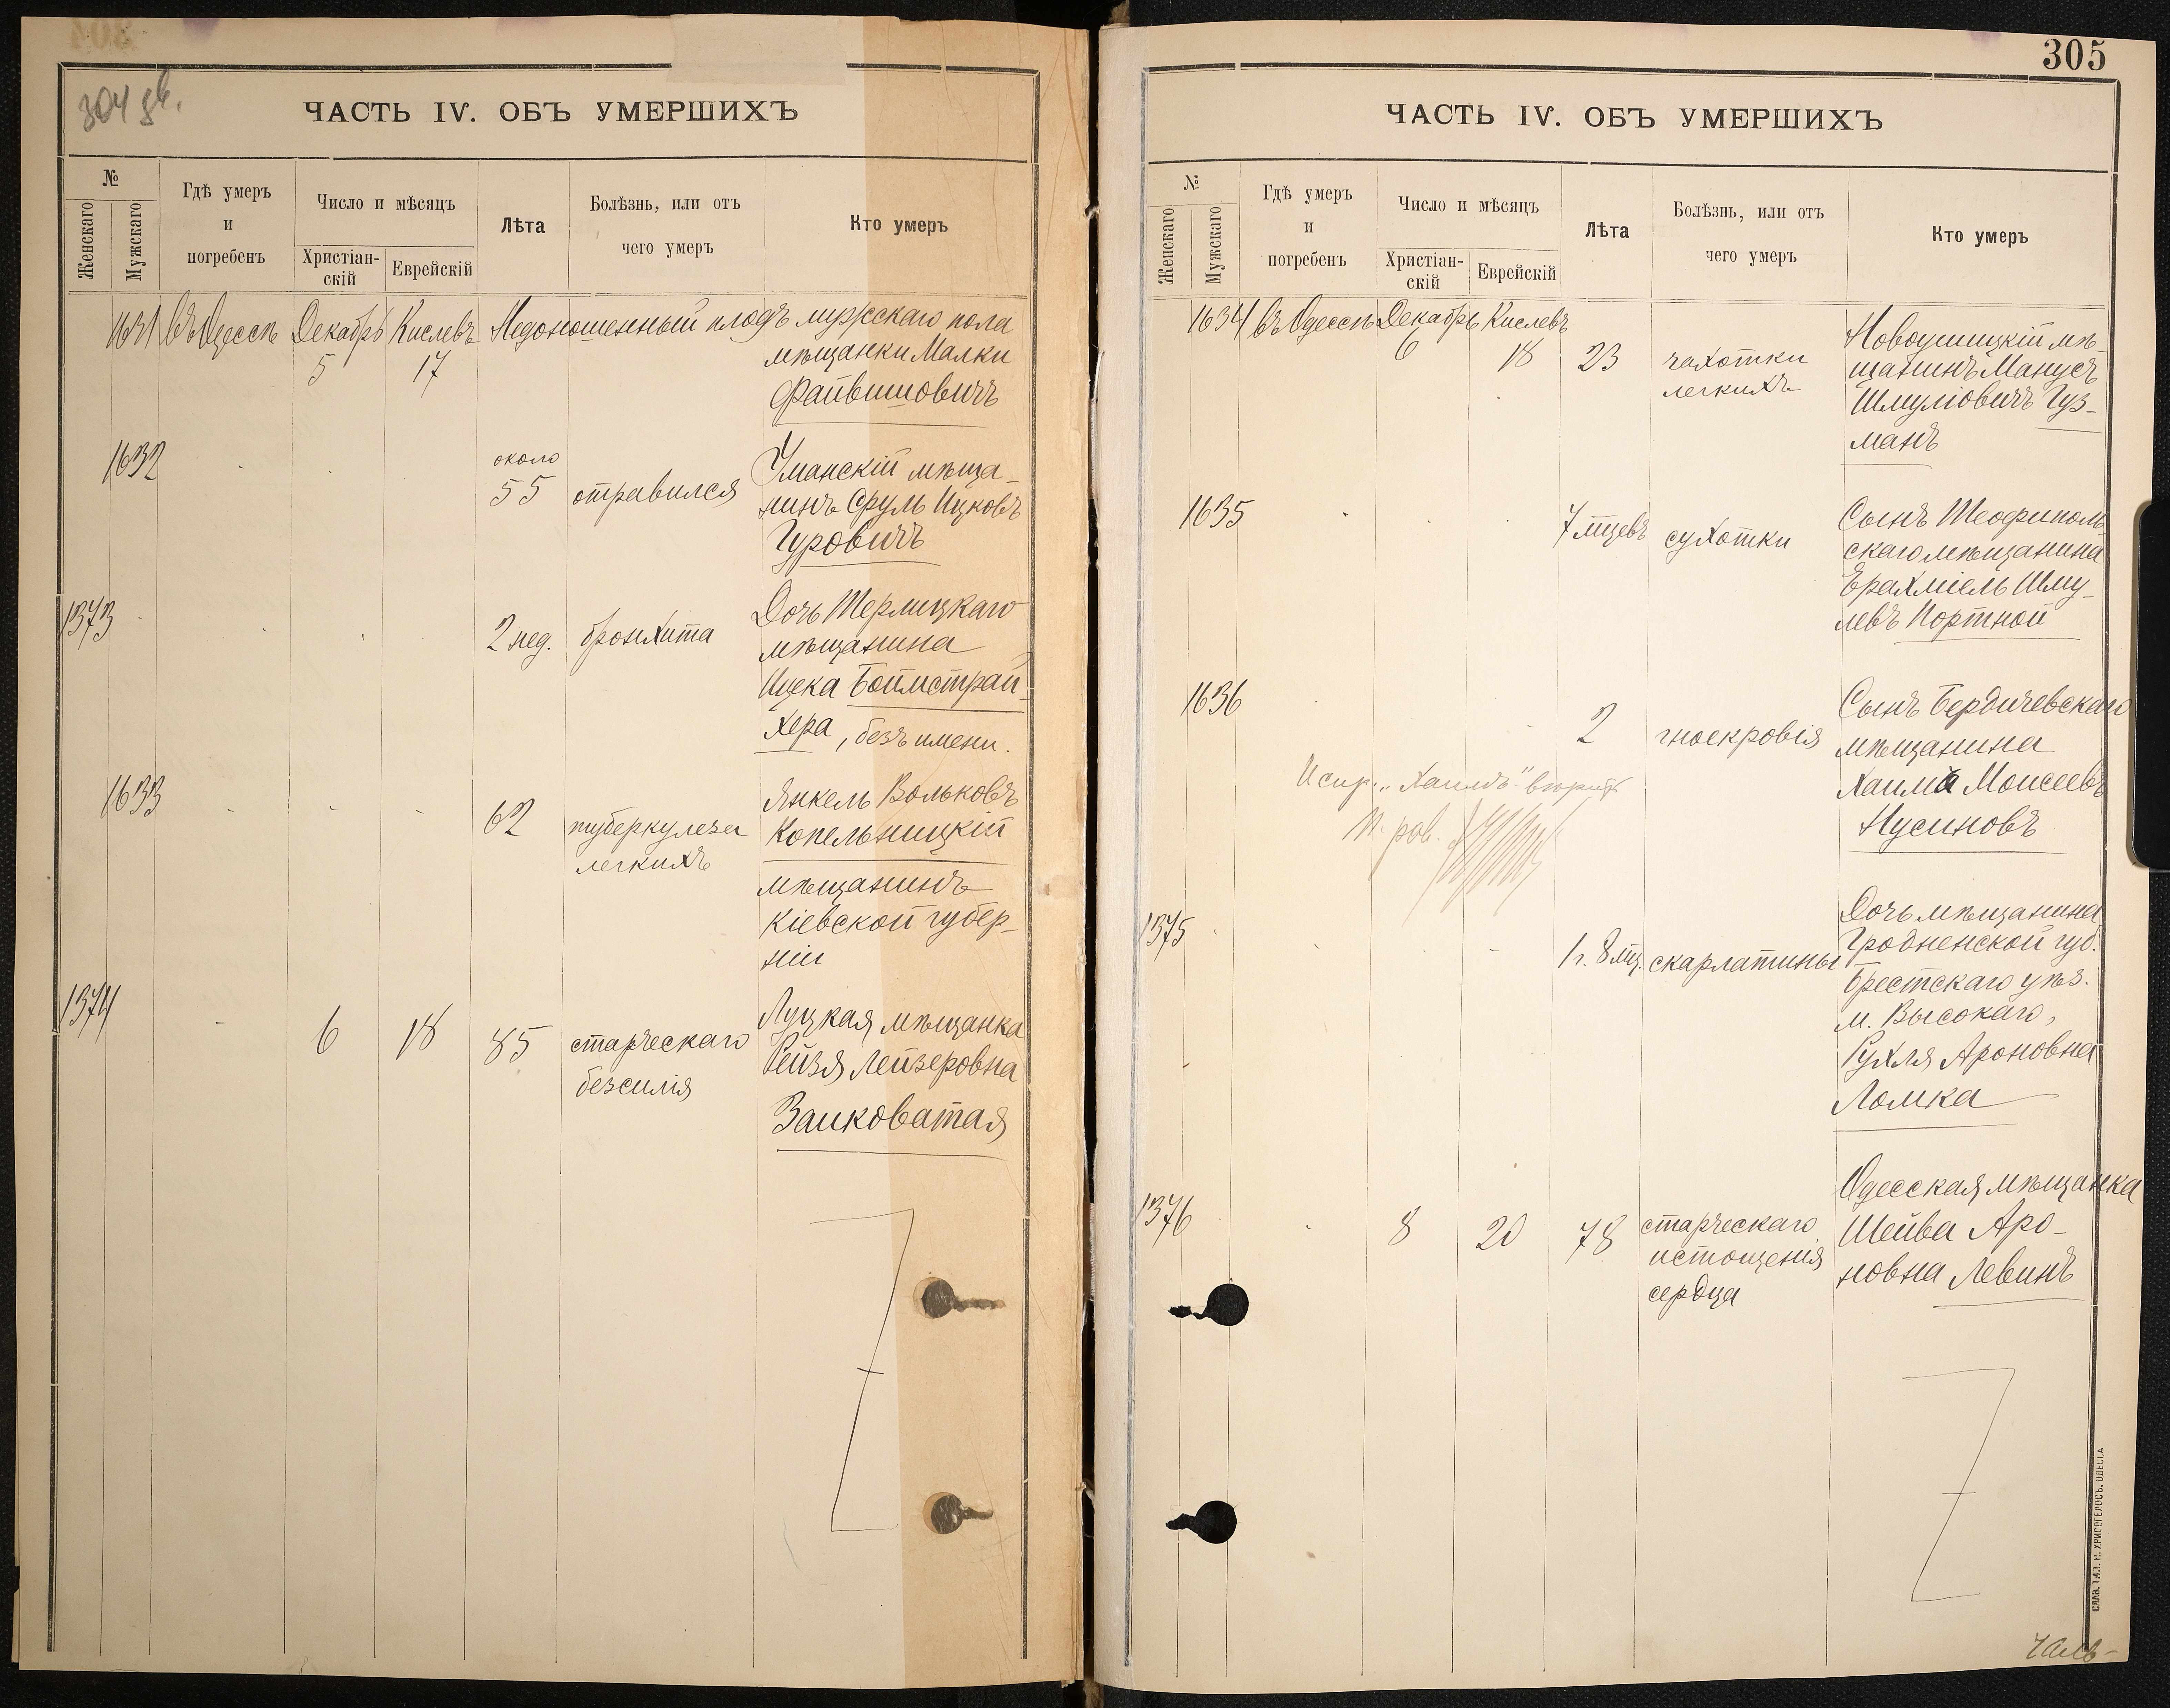 304 дв.
ЧАСТЬ IV. ОБЪ УМЕРШИХЪ
№
Женскаго
Мужскаго
Гдѣ умеръ
и
погребенъ
Число и мѣсяцъ
Христіан-
скій
Еврейскій
Лѣта
Болѣзнь, или отъ
чего умеръ
Кто умеръ
1631 Въ Одессѣ Декабрь Кислевъ Недоношенный плодъ мужскаго пола
5 17 мѣщанки Малки
Файвишовичъ
1632 около
55 отравился Уманскій мѣща-
нинъ Сруль Ицковъ
Гуровичъ
1373 2 нед. бронхита Дочь Терлицкаго
мѣщанина
Ицека Боймстрай-
хера, безъ имени.
1633 62 туберкулеза легкихъ Янкель Вольковъ
Копельницкій
мѣщанинъ
Кіевской губер-
ніи
1374 6 18 85 старческаго безсилія Луцкая мѣщанка
Рейзя Лейзеровна
Заиковатая
305
ЧАСТЬ IV. ОБЪ УМЕРШИХЪ
№
Женскаго
Мужскаго
Гдѣ умеръ
и
погребенъ
Число и мѣсяцъ
Христіан-
скій
Еврейскій
Лѣта
Болѣзнь, или отъ
чего умеръ
Кто умеръ
1634 Въ Одессѣ Декабрь Кислевъ
6 18 23 чахотки легкихъ Новоушицкій мѣ-
щанинъ Манусъ
Шмуліовичъ Гуз-
манъ
1635 7 мцевъ сухотки Сынъ Теофиполь-
скаго мѣщанина
Ерахміель Шму-
левъ Портной
1636 2 гноекровія Сынъ Бердичевскаго
мѣщанина
Хаима Моисеевъ
Нусиновъ
Испр. „Хаимъ" вѣрить
1375 1 г. 8 мц. скарлатины Дочь мѣщанина
Гродненской губ.
Брестскаго уѣз.
м. Высокаго,
Рухля Ароновна
Ломка
1376 8 20 78 старческаго истощенія сердца Одесская мѣщанка
Шейва Аро-
новна Левинъ
СЛАВ. ТИП. Н. ХРИСОГЕЛОСЪ. ОДЕССА